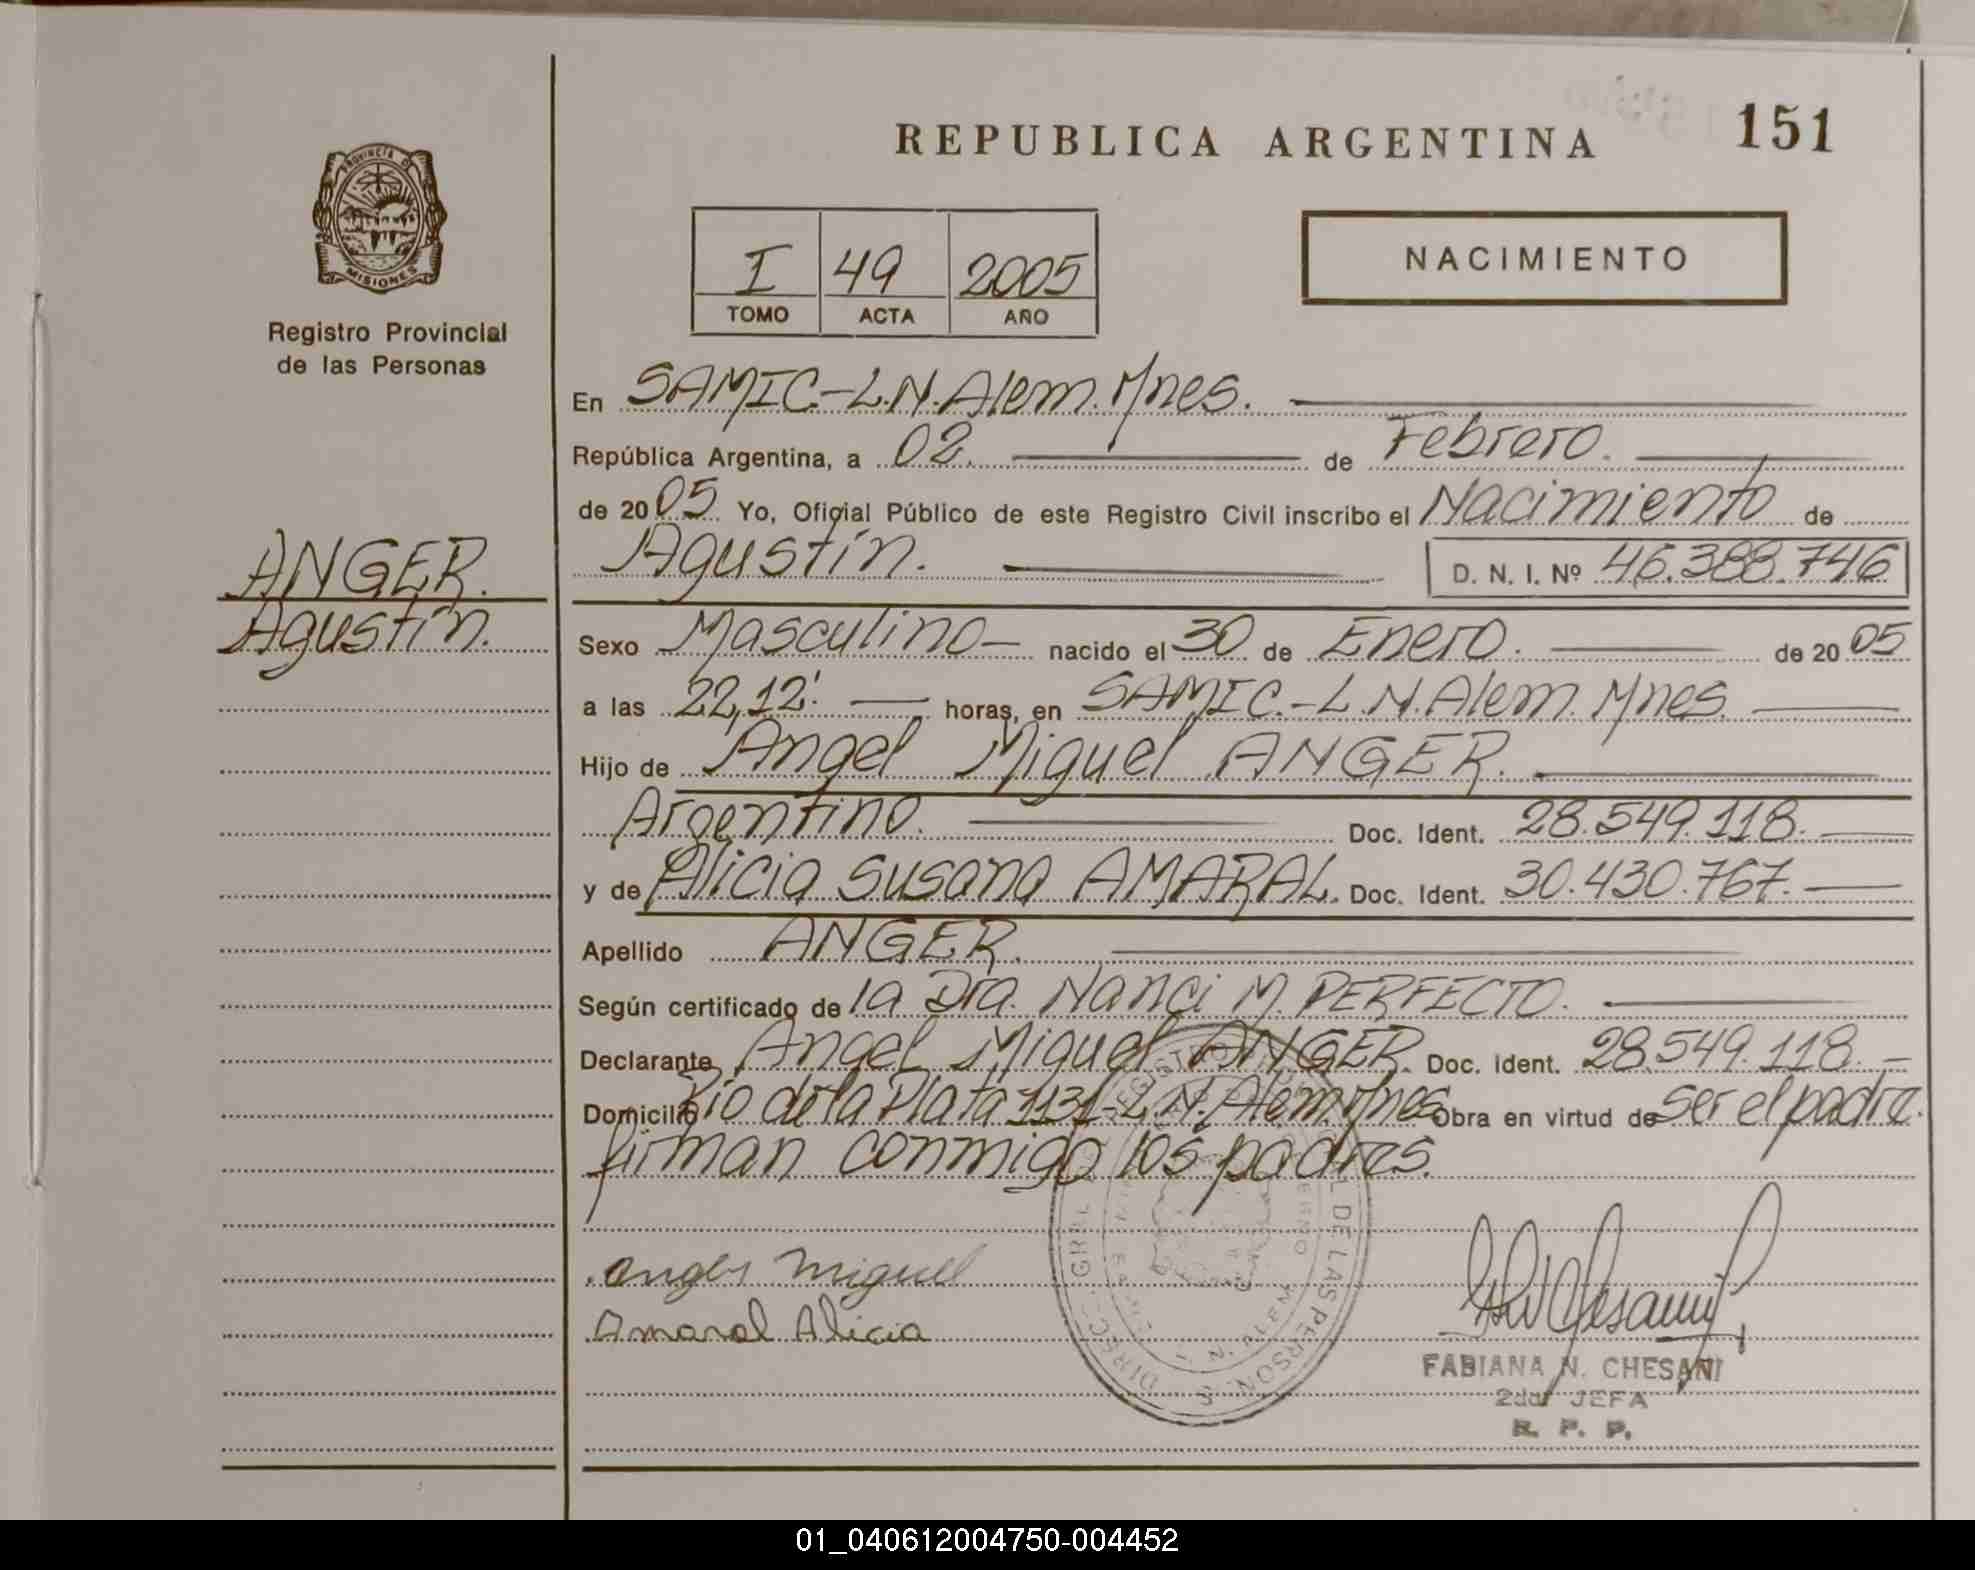 REPUBLICA ARGENTINA
151
PROVINCIA DE
MISIONES
Registro Provincial
de las Personas
I 49 2005
TOMO ACTA AÑO
NACIMIENTO
ANGER.
Agustín.
En SAMIC.-L.N.Alem.Mnes.
República Argentina, a 02. de Febrero.
de 2005 Yo, Oficial Público de este Registro Civil inscribo el Nacimiento de
Agustín. D. N. I. Nº 46.388.746
Sexo Masculino- nacido el 30 de Enero. de 2005
a las 22,12'. horas, en SAMIC.-L.N.Alem.Mnes.
Hijo de Angel Miguel ANGER.
Argentino. Doc. Ident. 28.549.118.
y de Alicia Susana AMARAL. Doc. Ident. 30.430.767.
Apellido ANGER.
Según certificado de la Dra. Nanci M. PERFECTO.
Declarante Angel Miguel ANGER. Doc. Ident. 28.549.118.-
Domicilio Rio de la Plata 1131-L.N.Alem.Mnes Obra en virtud de ser el padre.
firman conmigo los padres.
Anger Miguel
Amaral Alicia
FABIANA N. CHESANI
2da. JEFA
R. P. P.
01_040612004750-004452